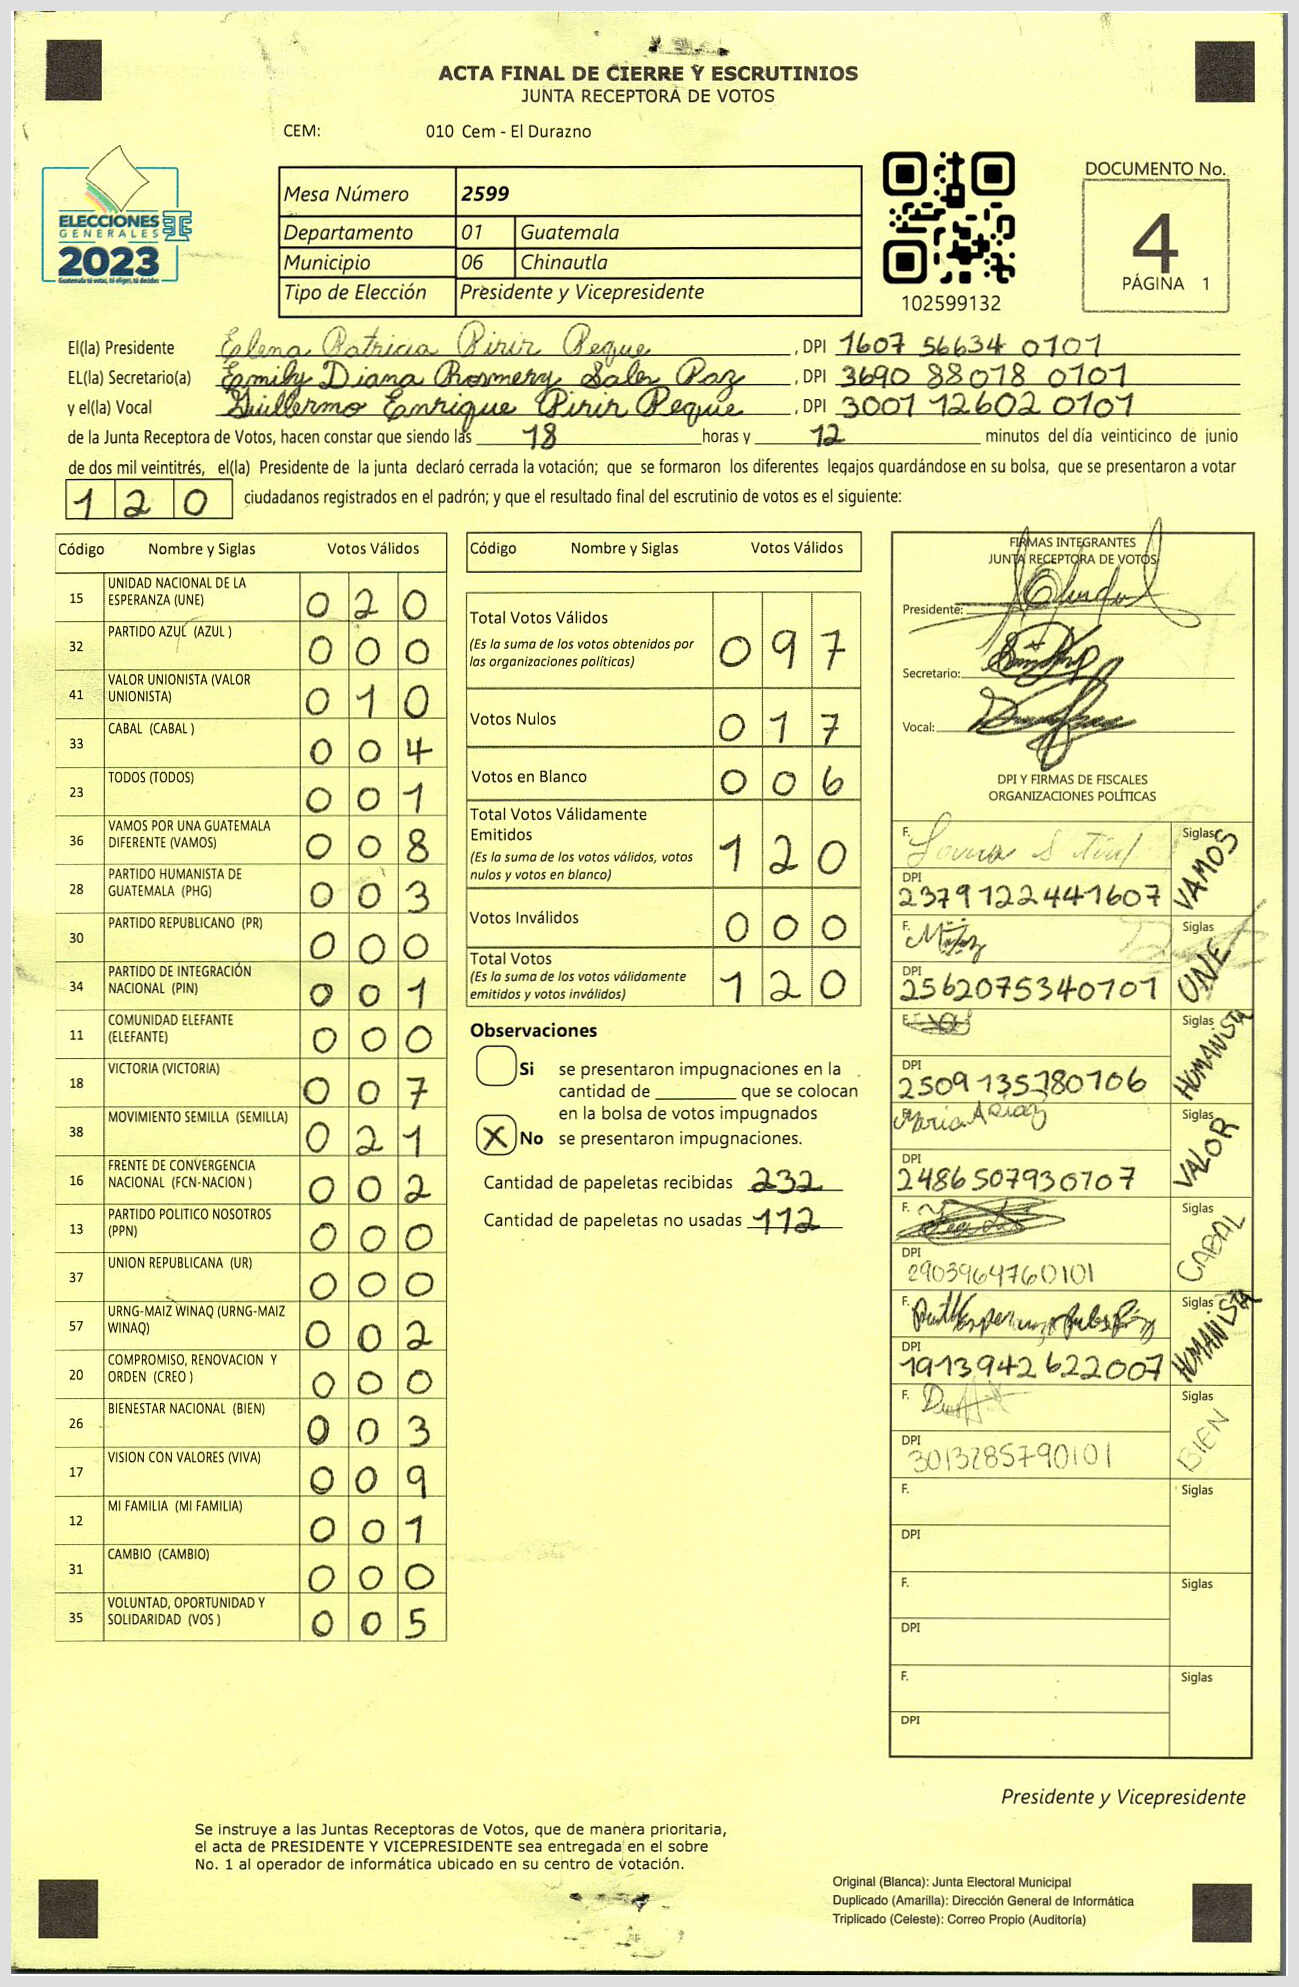 ACTA FINAL DE CIERRE Y ESCRUTINIOS
JUNTA RECEPTORA DE VOTOS
CEM: 010 Cem - El Durazno
ELECCIONES
GENERALES
2023
Mesa Número 2599
Departamento 01 Guatemala
Municipio 06 Chinautla
Tipo de Elección Presidente y Vicepresidente
102599132
DOCUMENTO No.
4
PÁGINA 1
El(la) Presidente Elena Patricia Pirir Peque, DPI 1607 56634 0101
EL(la) Secretario(a) Emily Diana Rosmery Saler Paz, DPI 3690 88018 0101
y el(la) Vocal Guillermo Enrique Pirir Peque, DPI 3001 12602 0101
de la Junta Receptora de Votos, hacen constar que siendo las 18 horas y 12 minutos del día veinticinco de junio
de dos mil veintitrés, el(la) Presidente de la junta declaró cerrada la votación; que se formaron los diferentes legajos quardándose en su bolsa, que se presentaron a votar
120 ciudadanos registrados en el padrón; y que el resultado final del escrutinio de votos es el siguiente:
Código Nombre y Siglas Votos Válidos
15 UNIDAD NACIONAL DE LA ESPERANZA (UNE) 0 2 0
32 PARTIDO AZUL (AZUL ) 0 0 0
41 VALOR UNIONISTA (VALOR UNIONISTA) 0 1 0
33 CABAL (CABAL ) 0 0 4
23 TODOS (TODOS) 0 0 1
36 VAMOS POR UNA GUATEMALA DIFERENTE (VAMOS) 0 0 8
28 PARTIDO HUMANISTA DE GUATEMALA (PHG) 0 0 3
30 PARTIDO REPUBLICANO (PR) 0 0 0
34 PARTIDO DE INTEGRACIÓN NACIONAL (PIN) 0 0 1
11 COMUNIDAD ELEFANTE (ELEFANTE) 0 0 0
18 VICTORIA (VICTORIA) 0 0 7
38 MOVIMIENTO SEMILLA (SEMILLA) 0 2 1
16 FRENTE DE CONVERGENCIA NACIONAL (FCN-NACION ) 0 0 2
13 PARTIDO POLITICO NOSOTROS (PPN) 0 0 0
37 UNION REPUBLICANA (UR) 0 0 0
57 URNG-MAIZ WINAQ (URNG-MAIZ WINAQ) 0 0 2
20 COMPROMISO, RENOVACION Y ORDEN (CREO ) 0 0 0
26 BIENESTAR NACIONAL (BIEN) 0 0 3
17 VISION CON VALORES (VIVA) 0 0 9
12 MI FAMILIA (MI FAMILIA) 0 0 1
31 CAMBIO (CAMBIO) 0 0 0
35 VOLUNTAD, OPORTUNIDAD Y SOLIDARIDAD (VOS ) 0 0 5
Código Nombre y Siglas Votos Válidos
Total Votos Válidos 0 9 7
(Es la suma de los votos obtenidos por
las organizaciones políticas)
Votos Nulos 0 1 7
Votos en Blanco 0 0 6
Total Votos Válidamente
Emitidos 1 2 0
(Es la suma de los votos válidos, votos
nulos y votos en blanco)
Votos Inválidos 0 0 0
Total Votos 1 2 0
(Es la suma de los votos válidamente
emitidos y votos inválidos)
Observaciones
Si se presentaron impugnaciones en la
cantidad de ________ que se colocan
en la bolsa de votos impugnados
X No se presentaron impugnaciones.
Cantidad de papeletas recibidas 232
Cantidad de papeletas no usadas 112
FIRMAS INTEGRANTES
JUNTA RECEPTORA DE VOTOS
Presidente:
Secretario:
Vocal:
DPI Y FIRMAS DE FISCALES
ORGANIZACIONES POLÍTICAS
F. Siglas VAMOS
DPI 2379122441607
F. Siglas UNE
DPI 2562075340101
F. Siglas HUMANISTA
DPI 2509135780106
F. Maria A Diaz Siglas VALOR
DPI 2486507930107
F. Siglas CABAL
DPI 2903964760101
F. Siglas HUMANISTA
DPI 1913942622007
F. Siglas BIEN
DPI 3013285790101
F. Siglas
DPI
F. Siglas
DPI
F. Siglas
DPI
Presidente y Vicepresidente
Se instruye a las Juntas Receptoras de Votos, que de manera prioritaria,
el acta de PRESIDENTE Y VICEPRESIDENTE sea entregada en el sobre
No. 1 al operador de informática ubicado en su centro de votación.
Original (Blanca): Junta Electoral Municipal
Duplicado (Amarilla): Dirección General de Informática
Triplicado (Celeste): Correo Propio (Auditoría)